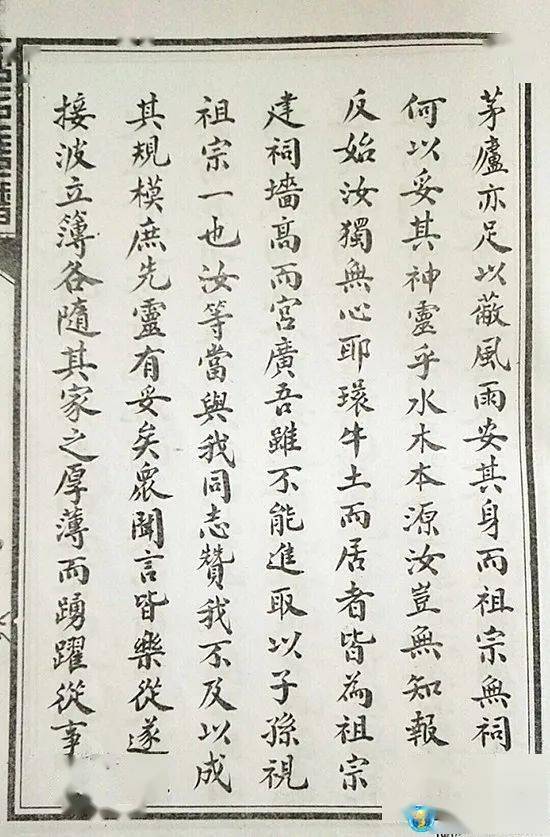 茅廬亦足以蔽風雨安其身而祖宗無祠
何以妥其神靈乎水木本源汝豈無知報
反始汝獨無心耶環牛土而居者皆為祖宗
建祠墻高而宮廣吾雖不能進取以子孫視
祖宗一也汝等當與我同志贊我不及以成
其規模庶先靈有妥矣眾聞言皆樂從遂
接波立簿各隨其家之厚薄而踴躍從事